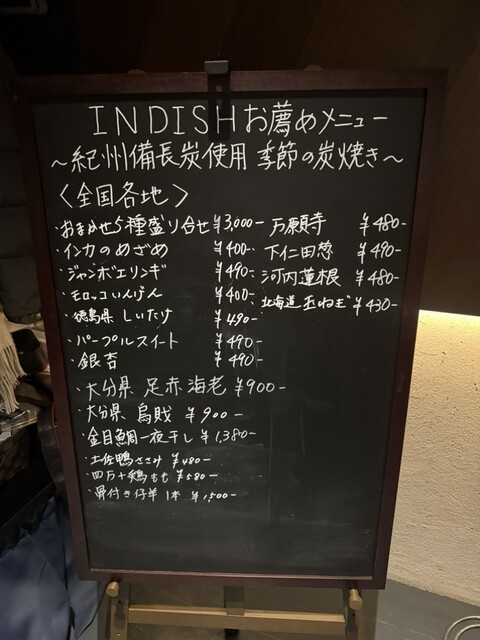 INDISHお薦めメニュー
〜紀州備長炭使用 季節の炭焼き〜
〈全国各地〉
・おまかせ5種盛り合せ ¥3,000-
・インカのめざめ ¥400-
・ジャンボエリンギ ¥490-
・モロッコいんげん ¥400-
・徳島県 しいたけ ¥490-
・パープルスイート ¥490-
・銀杏 ¥490-
万願寺 ¥480-
下仁田葱 ¥490-
河内蓮根 ¥480-
北海道 玉ねぎ ¥430-
・大分県 足赤海老 ¥900-
・大分県 烏賊 ¥900-
・金目鯛一夜干し ¥1,380-
・土佐鴨ささみ ¥480-
・四万十鶏もも ¥580-
・骨付き仔羊 1本 ¥1,500-